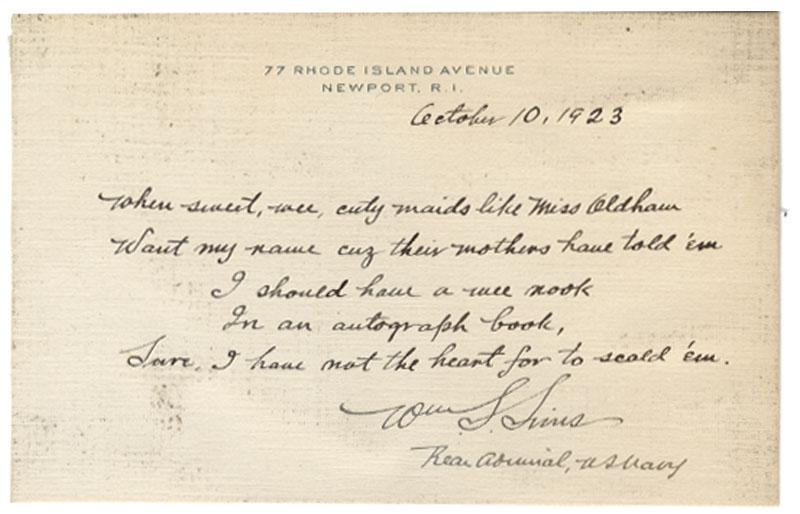 77 RHODE ISLAND AVENUE
NEWPORT, R.I.
October 10, 1923
When sweet, wee, cuty maids like Miss Oldham
Want my name cuz their mothers have told 'em
I should have a wee nook
In an autograph book,
Sure, I have not the heart for to scold 'em.
Wm S. Sims
Rear Admiral, U S Navy